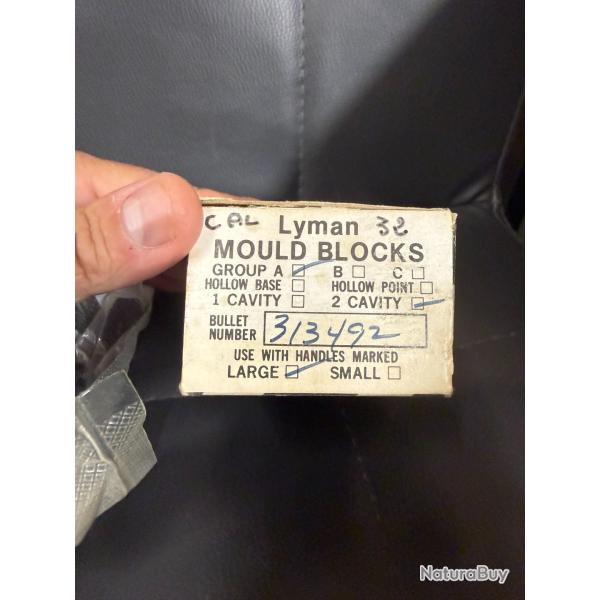 CAL Lyman 32
MOULD BLOCKS
GROUP A B C
HOLLOW BASE HOLLOW POINT
1 CAVITY 2 CAVITY
BULLET NUMBER 313492
USE WITH HANDLES MARKED
LARGE SMALL
NaturaBuy